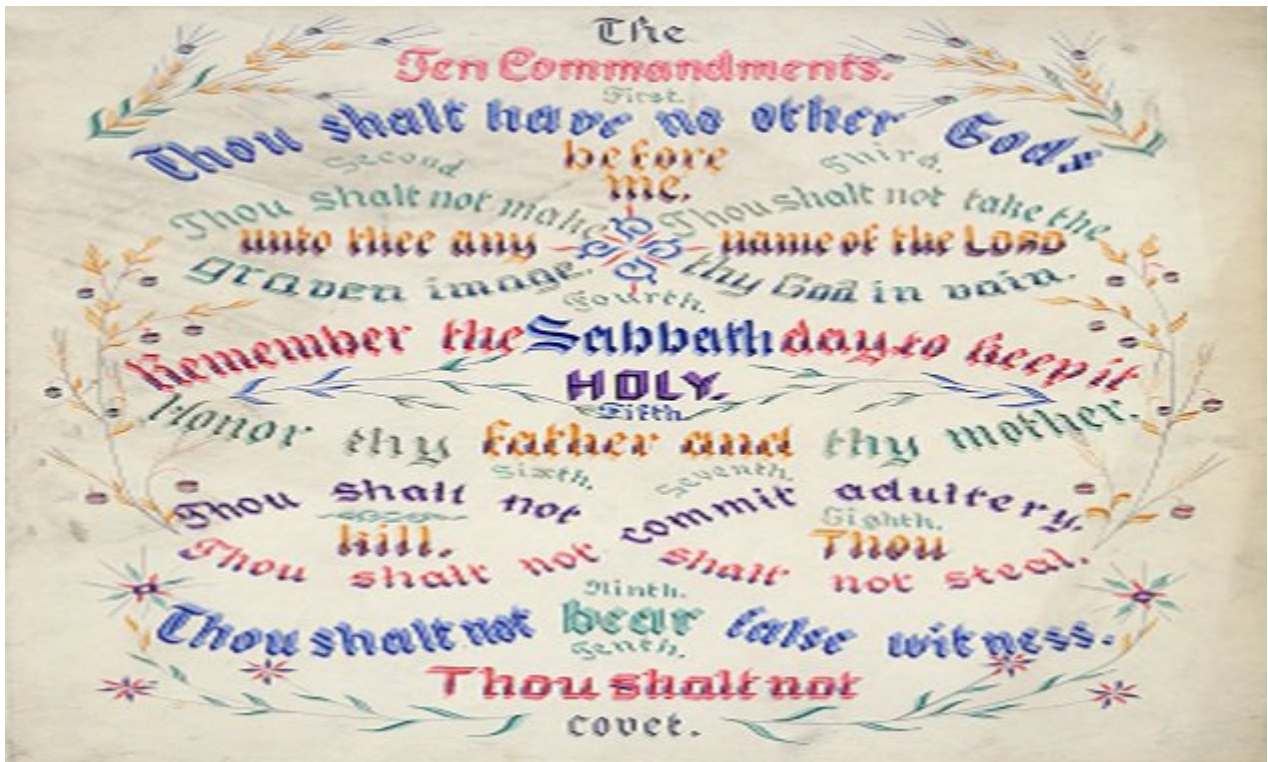 The
Ten Commandments.
First.
Thou shalt have no other Gods
before
me.
Second
Thou shalt not make
unto thee any
graven image.
Third.
Thou shalt not take the
name of the LORD
thy God in vain.
Fourth.
Remember the Sabbath day to keep it
HOLY.
Fifth
Honor thy father and thy mother.
Sixth.
Thou shalt not
kill.
Seventh.
Thou shalt not
commit adultery.
Eighth.
Thou
shalt not steal.
Ninth.
Thou shalt not bear false witness.
Tenth.
Thou shalt not
covet.